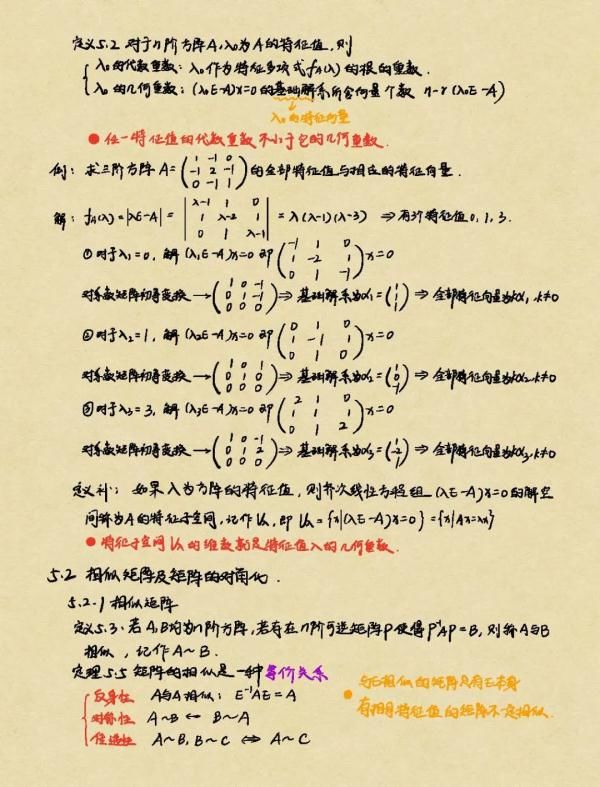 定义5.2 对于n阶方阵A,λ₀为A的特征值,则
λ₀的代数重数:λ₀作为特征多项式f_A(λ)的根的重数.
λ₀的几何重数:(λ₀E-A)x=0的基础解系所含向量个数 n-r(λ₀E-A)
λ₀的特征向量
● 任一特征值的代数重数不小于它的几何重数.
例:求三阶方阵A=(1 -1 0; -1 2 -1; 0 -1 1)的全部特征值与相应的特征向量.
解:f_A(λ)=|λE-A|=|λ-1 1 0; 1 λ-2 1; 0 1 λ-1|=λ(λ-1)(λ-3) ⇒ 有3个特征值0,1,3.
①对于λ₁=0,解(λ₁E-A)x=0即(-1 1 0; 1 -2 1; 0 1 -1)x=0
对系数矩阵初等变换→(1 0 -1; 0 1 -1; 0 0 0)⇒基础解系为α₁=(1; 1; 1)⇒全部特征向量为kα₁,k≠0
②对于λ₂=1,解(λ₂E-A)x=0即(0 1 0; 1 -1 1; 0 1 0)x=0
对系数矩阵初等变换→(1 0 1; 0 1 0; 0 0 0)⇒基础解系为α₂=(1; 0; -1)⇒全部特征向量为kα₂,k≠0
③对于λ₃=3,解(λ₃E-A)x=0即(2 1 0; 1 1 1; 0 1 2)x=0
对系数矩阵初等变换→(1 0 -1; 0 1 2; 0 0 0)⇒基础解系为α₃=(1; -2; 1)⇒全部特征向量为kα₃,k≠0
定义补:如果λ为方阵的特征值,则齐次线性方程组(λE-A)x=0的解空
间称为A的特征子空间,记作Vλ,即Vλ={x|(λE-A)x=0}={x|Ax=λx}
● 特征子空间Vλ的维数就是特征值λ的几何重数.
5.2 相似矩阵及矩阵的对角化.
5.2.1 相似矩阵
定义5.3:若A,B均为n阶方阵,若存在n阶可逆矩阵P使得P⁻¹AP=B,则称A与B
相似,记作A~B.
定理5.5 矩阵的相似是一种等价关系
反身性 A与A相似:E⁻¹AE=A
对称性 A~B ↔ B~A
传递性 A~B,B~C ⇔ A~C
● 与E相似的矩阵只有E本身
有相同特征值的矩阵不一定相似.